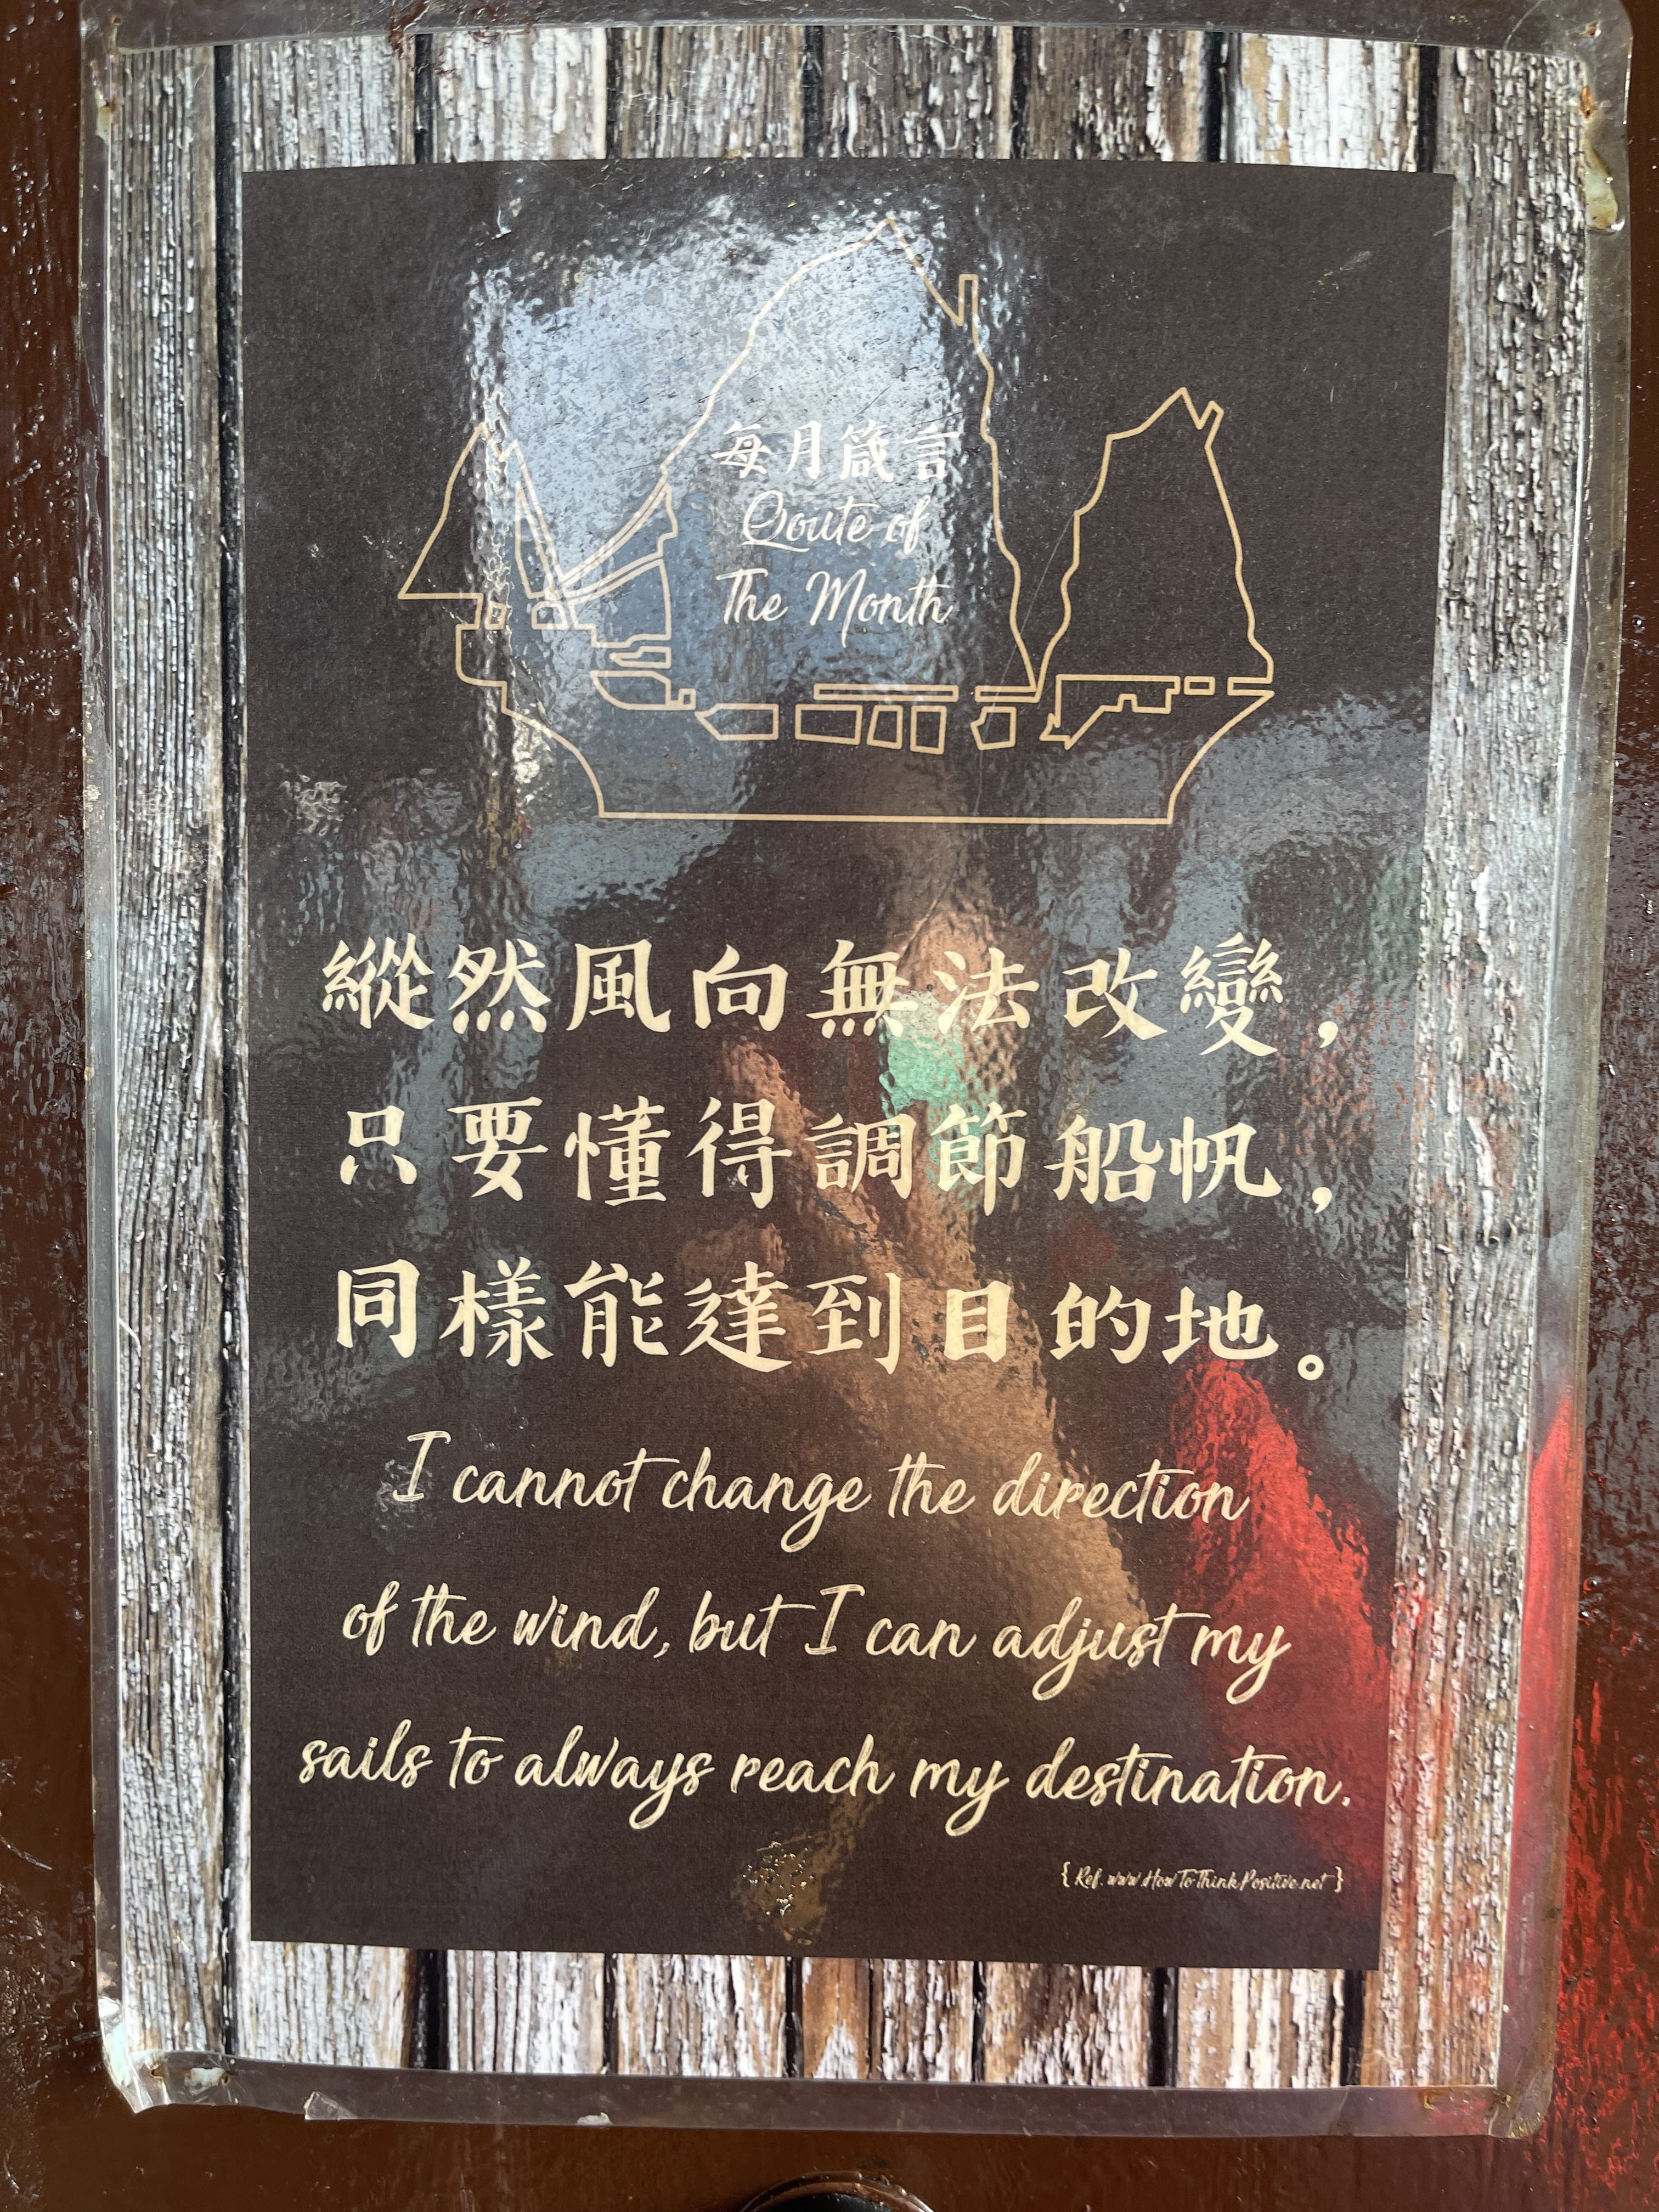 每月箴言
Qoute of
The Month
縱然風向無法改變，
只要懂得調節船帆，
同樣能達到目的地。
I cannot change the direction
of the wind, but I can adjust my
sails to always reach my destination.
{ Ref. www.HowToThinkPositive.net }